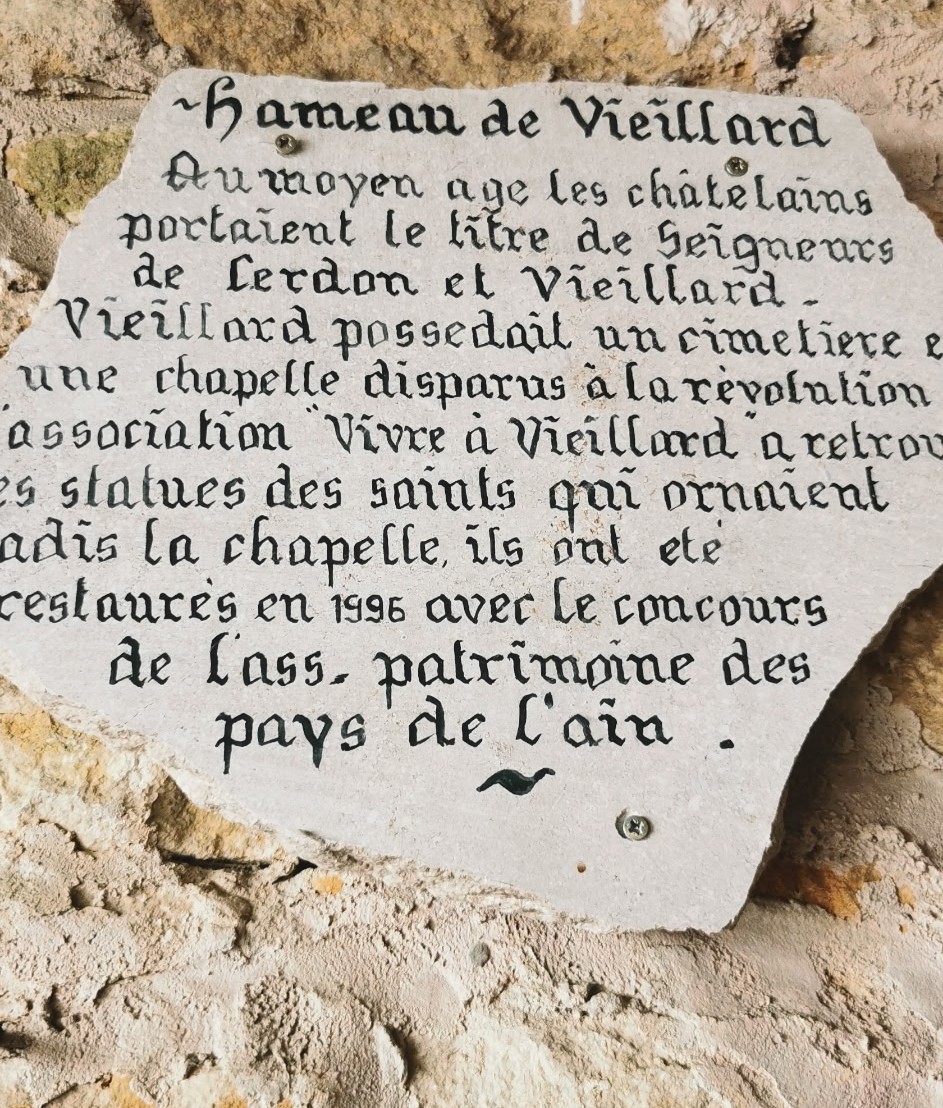 ~Hameau de Vieillard
Au moyen age les châtelains
portaient le titre de Seigneurs
de Cerdon et Vieillard.
Vieillard possedait un cimetiere e
une chapelle disparus à la rèvolution
'association "Vivre à Vieillard" a retrou
es statues des saints qui ornaient
adis la chapelle, ils ont eté
restaurès en 1996 avec le concours
de l'ass. patrimoine des
pays de l'ain .
~